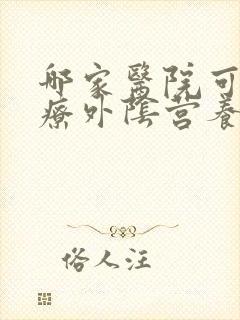 哪家醫院可
療外陰营養
俗人汪